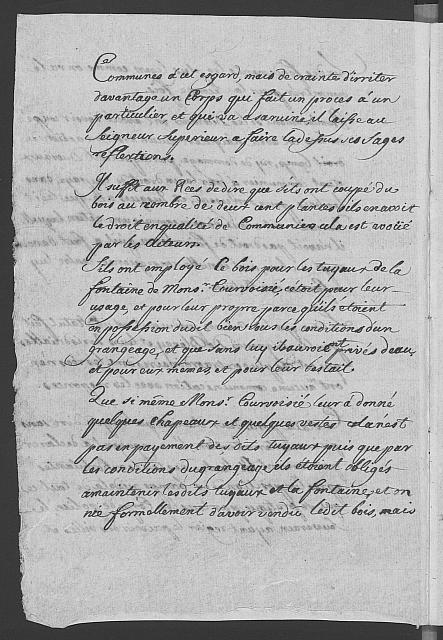 Communes a cet esgard, mais de crainte d'irriter
davantage un Corps qui fait un proces à un
particulier et qui va a sa ruine, il laisse au
Seigneur Superieur a faire la dessus ses sages
reflections.
Il sufit aux Rées de dire que s'ils ont coupé du
bois au nombre de deux cent plantes ils en avoit
le droit en qualité de Communiers cela est avoüé
par les Acteurs.
S'ils ont employé le bois pour les tuyaux de la
fontaine de Monsr. Courvoisié, c'etoit pour leur
usage, et pour leur propre parce qu'ils étoient
en possession dudit bien sous les conditions d'un
grangeage, et que sans luy ils auroient privés d'eau,
et pour eux mêmes, et pour leur bestail.
Que si même Monsr. Courvoisié leur a donné
quelques chapeaux et quelques vestes cela n'est
pas en payement des dits tuyaux puis que par
les conditions du grangeage, ils étoient obligés
a maintenir les dits tuyaux et la fontaine, et on
nie formellement d'avoir vendu ledit bois, mais